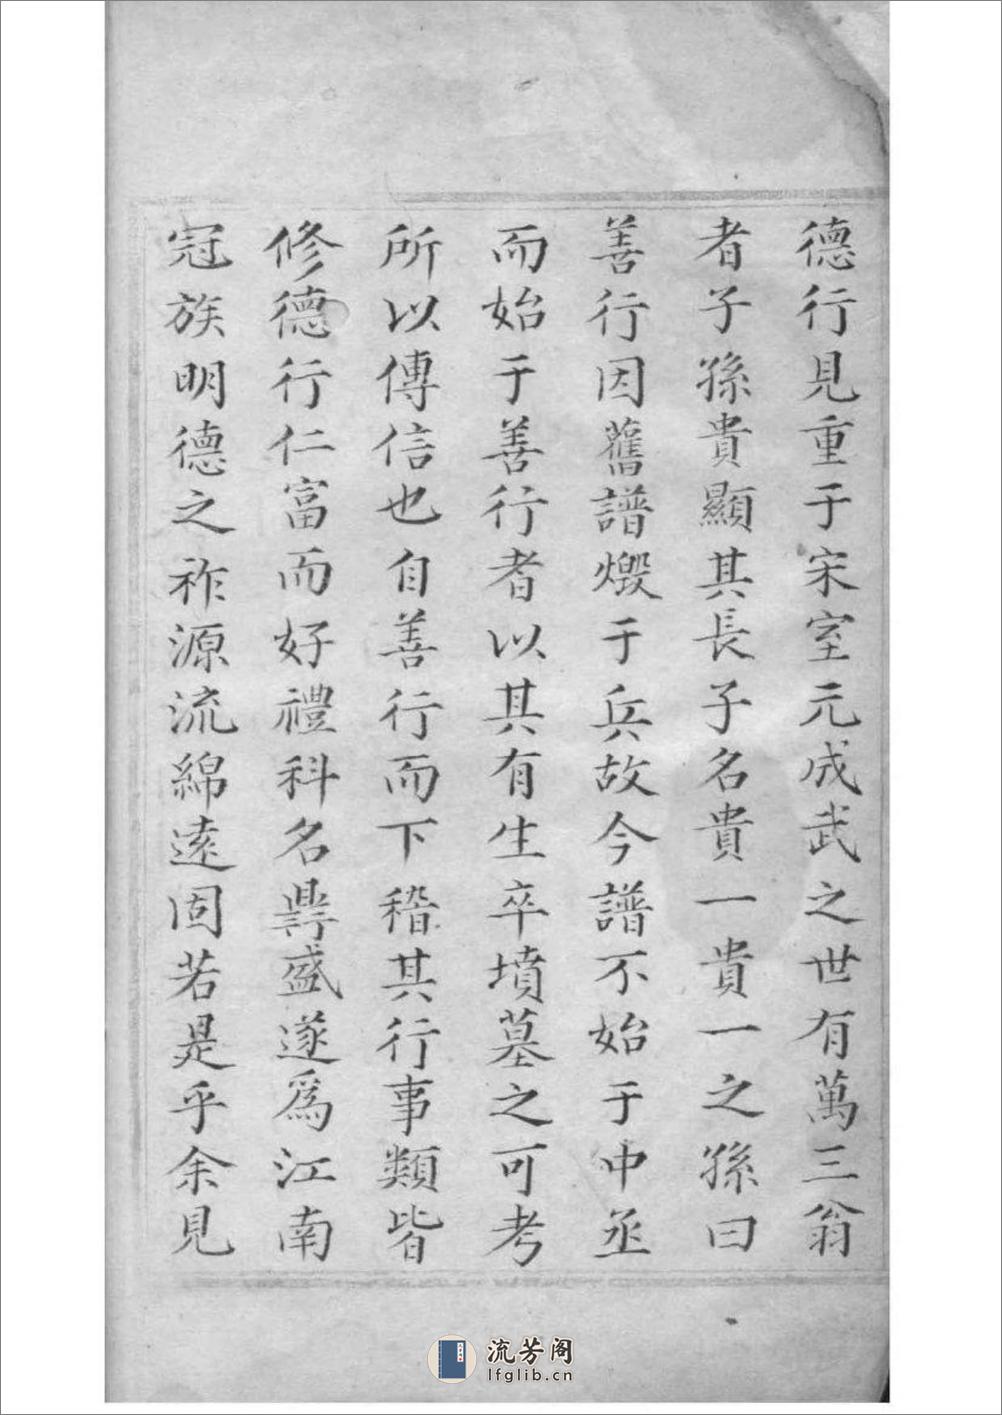 德行見重于宋室元成武之世有萬三翁
者子孫貴顯其長子名貴一貴一之孫曰
善行因舊譜燬于兵故今譜不始于中丞
而始于善行者以其有生卒墳墓之可考
所以傳信也自善行而下稽其行事類皆
修德行仁富而好禮科名鼎盛遂爲江南
冠族明德之祚源流綿遠固若是乎余見
流芳阁
lfglib.cn